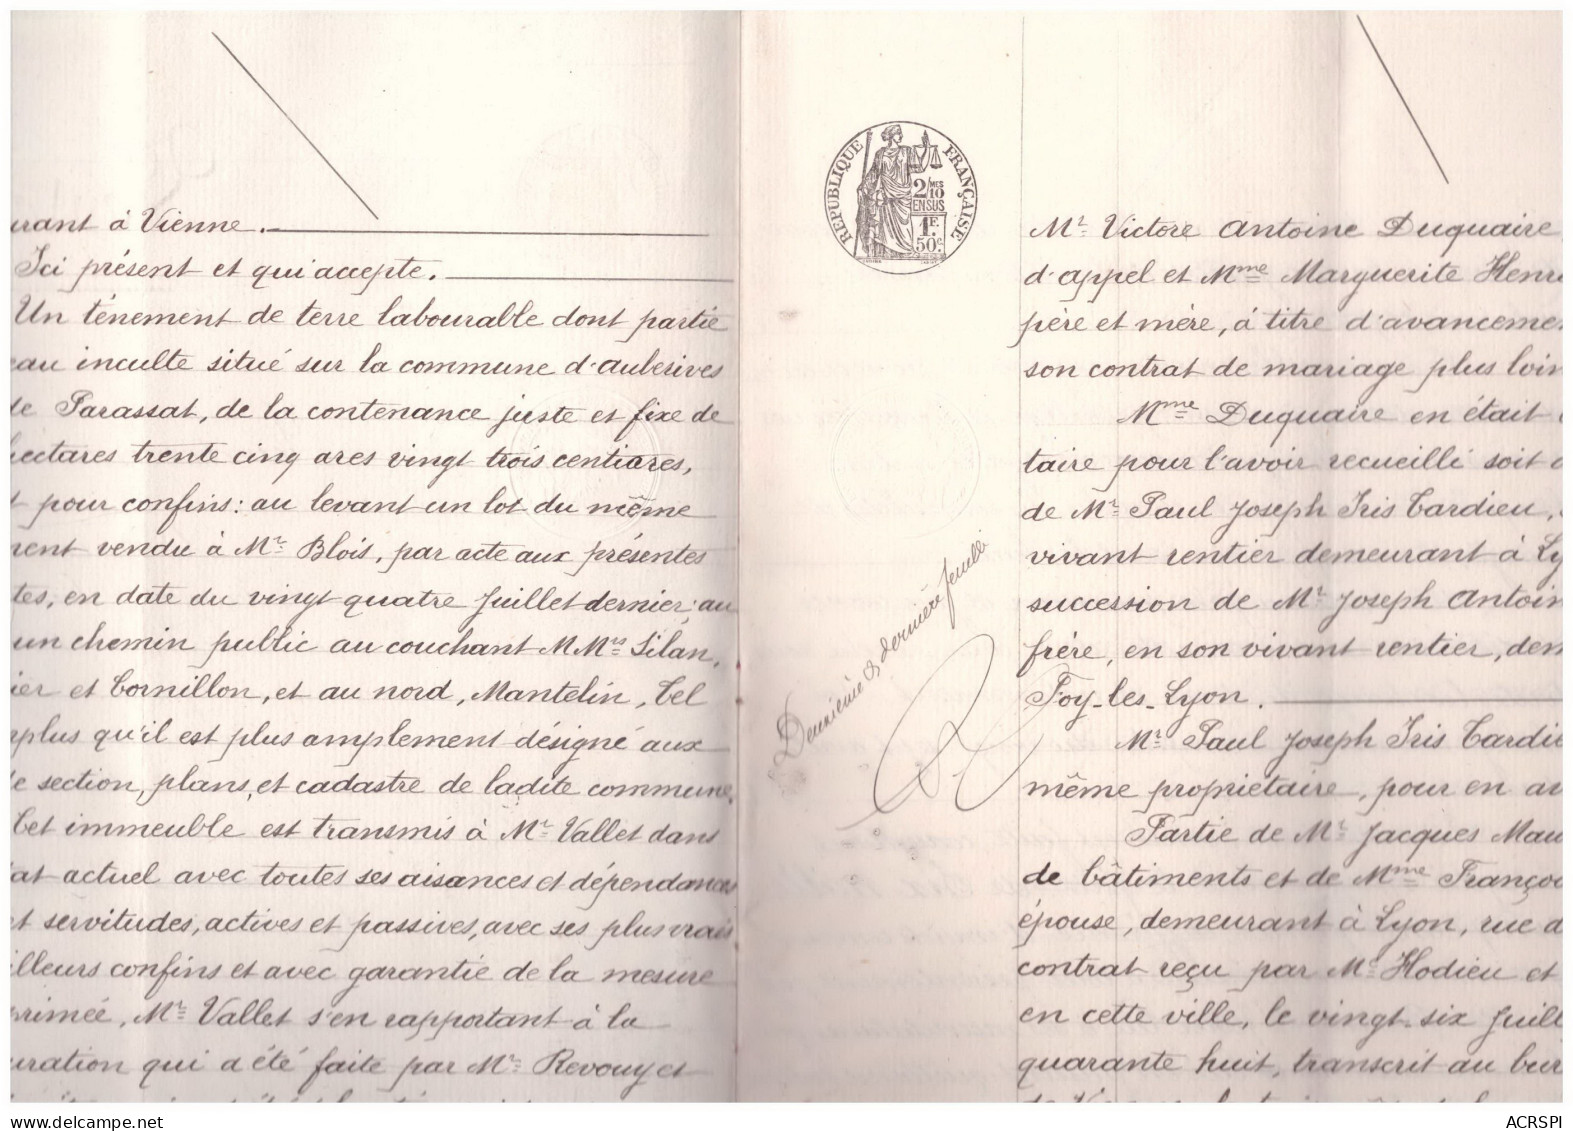 urant à Vienne.
Ici présent et qui accepte.
Un ténement de terre labourable dont partie
eau inculte situé sur la commune d'aubesives
de Parassat, de la contenance juste et fixe de
hectares trente cinq ares vingt trois centiares,
t pour confins: au levant un lot du même
ment vendu à Mr. Blois, par acte aux présentes
tes, en date du vingt quatre Juillet dernier; au
un chemin public au couchant M.Mrs Silan,
ier et Cornillon, et au nord, Mantelin, Tel
plus qu'il est plus amplement désigné aux
de section, plans, et cadastre de ladite commune.
Cet immeuble est transmis à Mr. Vallet dans
tat actuel avec toutes ses aisances et dépendances
et servitudes, actives et passives, avec ses plus vrais
illeurs confins et avec garantie de la mesure
primée, Mr. Vallet s'en rapportant à la
uration qui a été faite par Mr. Revouy et
REPUBLIQUE FRANÇAISE
2/10 MES
EN SUS
1F.
50c.
Deuxième & dernière feuille
Mr. Victore Antoine Duquaire
d'appel et Mme Marguerite Henri
père et mère, à titre d'avanceme
son contrat de mariage plus loin
Mme Duquaire en était
taire pour l'avoir recueilli soit d
de Mr. Paul Joseph Iris Tardieu,
vivant rentier demeurant à Ly
succession de Mr. Joseph Antoin
frère, en son vivant rentier, dem
Foy-les-Lyon.
Mr. Paul Joseph Iris Tardie
même propriétaire, pour en av
Partie de Mr. Jacques Mau
de bâtiments et de Mme Françoi
épouse, demeurant à Lyon, rue d
contrat reçu par Me Hodieu et
en cette ville, le vingt-six Juill
quarante huit, transcrit au bur
ACRSPI